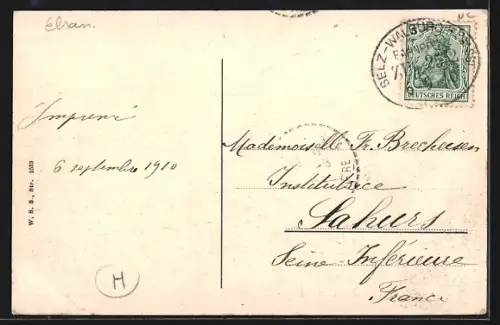 Elsan.
Imprimé
6 septembre 1910
W. H. S., Str.
SELZ-WALBURG
DEUTSCHES REICH
Mademoiselle Fr. Brecheisen
Institutrice
Sahurs
Seine-Inférieure
France
H